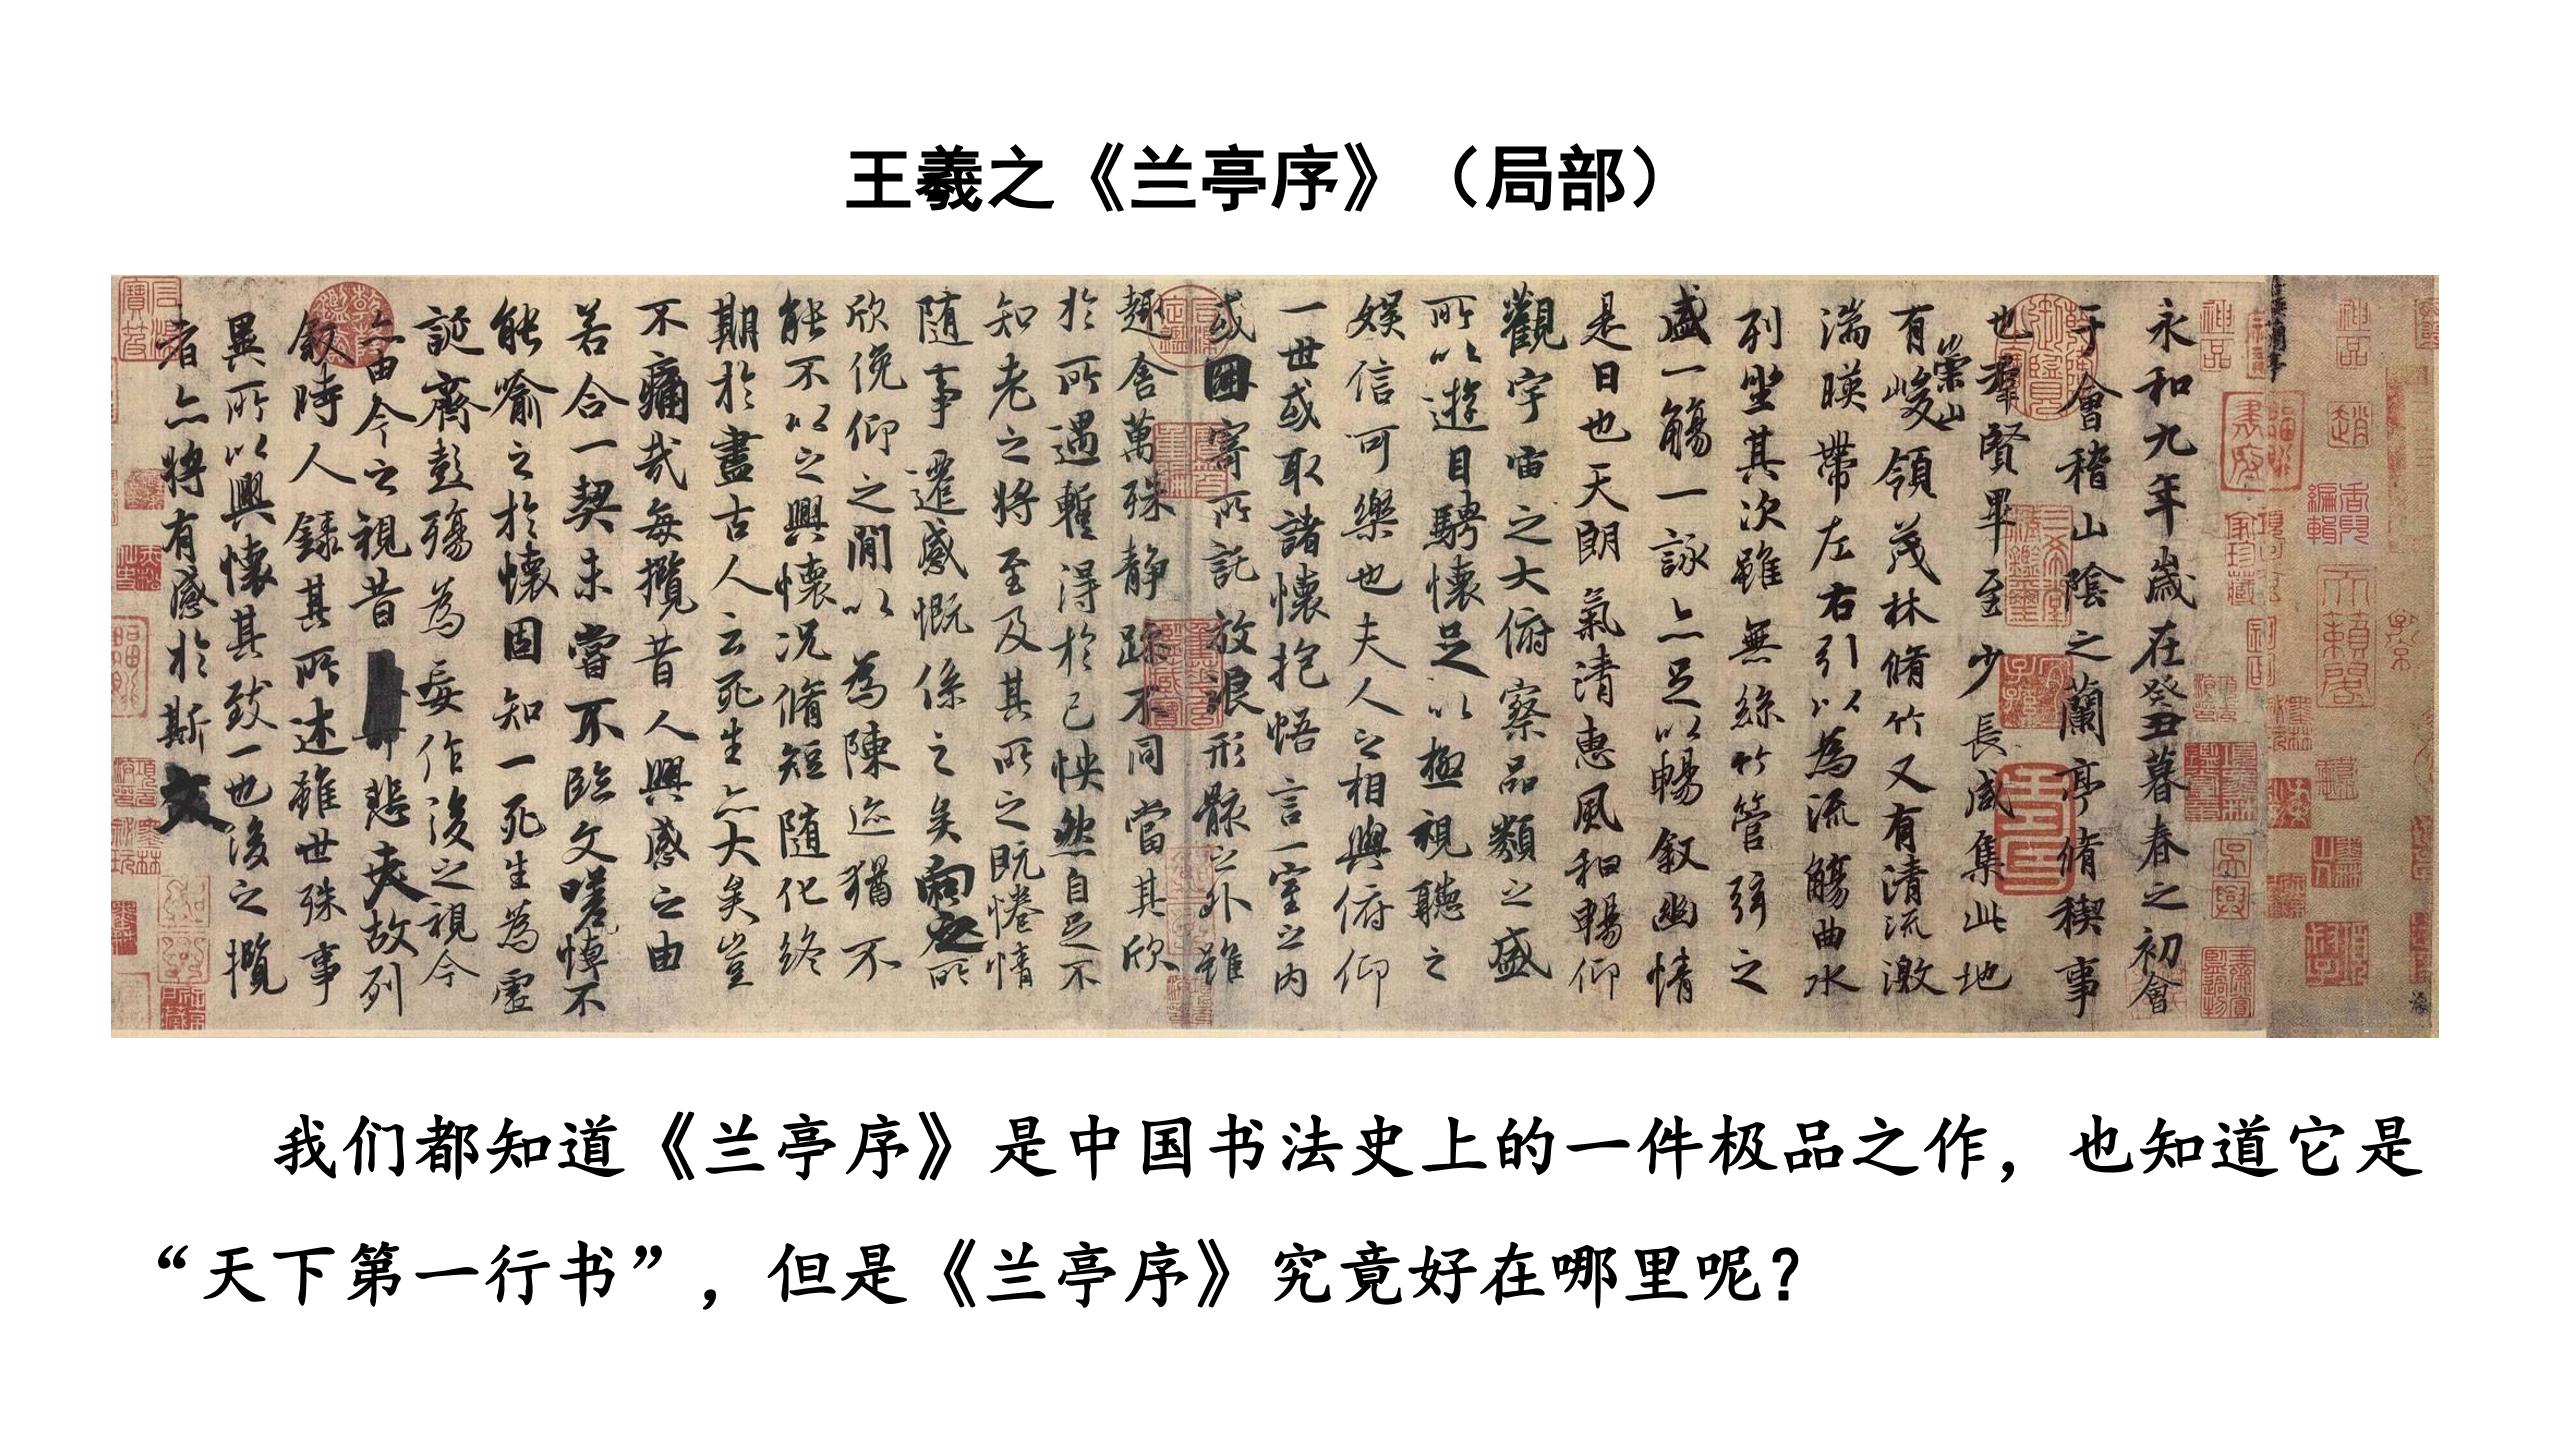 王羲之《兰亭序》（局部）
永和九年歲在癸丑暮春之初會
于會稽山陰之蘭亭脩稧事
也羣賢畢至少長咸集此地
有崇山峻領茂林脩竹又有清流激
湍暎帶左右引以為流觴曲水
列坐其次雖無絲竹管弦之
盛一觴一詠亦足以暢叙幽情
是日也天朗氣清惠風和暢仰
觀宇宙之大俯察品類之盛
所以遊目騁懷足以極視聽之
娛信可樂也夫人之相與俯仰
一世或取諸懷抱悟言一室之內
或因寄所託放浪形骸之外雖
趣舍萬殊静躁不同當其欣
於所遇暫得於己怏然自足不
知老之將至及其所之既惓情
随事遷感慨係之矣向之所
欣俛仰之閒以為陳迹猶不
能不以之興懷況脩短随化終
期於盡古人云死生亦大矣豈
不痛哉每攬昔人興感之由
若合一契未嘗不臨文嗟悼不
能喻之於懷固知一死生為虛
誕齊彭殤為妄作後之視今
亦由今之視昔悲夫故列
叙時人錄其所述雖世殊事
異所以興懷其致一也後之攬
者亦將有感於斯文
我们都知道《兰亭序》是中国书法史上的一件极品之作，也知道它是
“天下第一行书”，但是《兰亭序》究竟好在哪里呢？